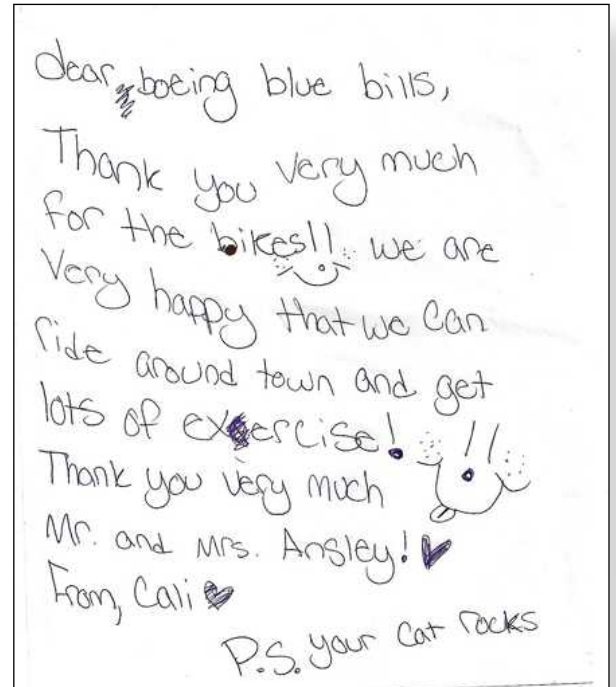 dear boeing blue bills,
Thank you very much
for the bikes!! we are
very happy that we can
ride around town and get
lots of exercise!
Thank you very much
Mr. and Mrs. Ansley!
From, Cali
P.S. your cat rocks